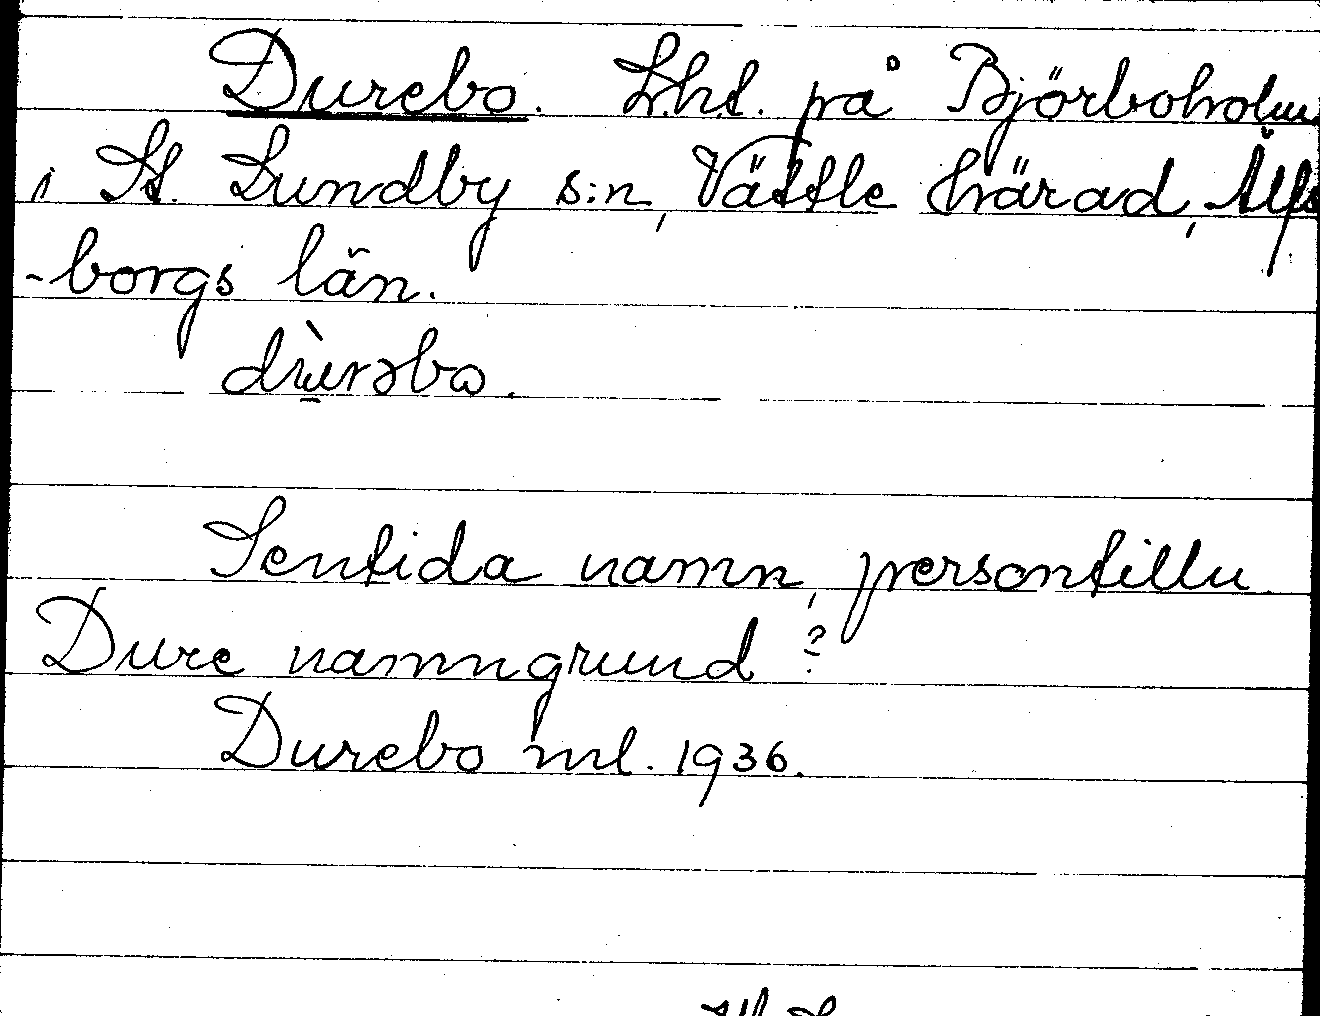 Durebo. Lht. på Björboholm
i St. Lundby s:n, Vättle härad, Älfs
-borgs län.
dùrəbo.
Sentida namn, persontilln
Dure namngrund?
Durebo ml. 1936.